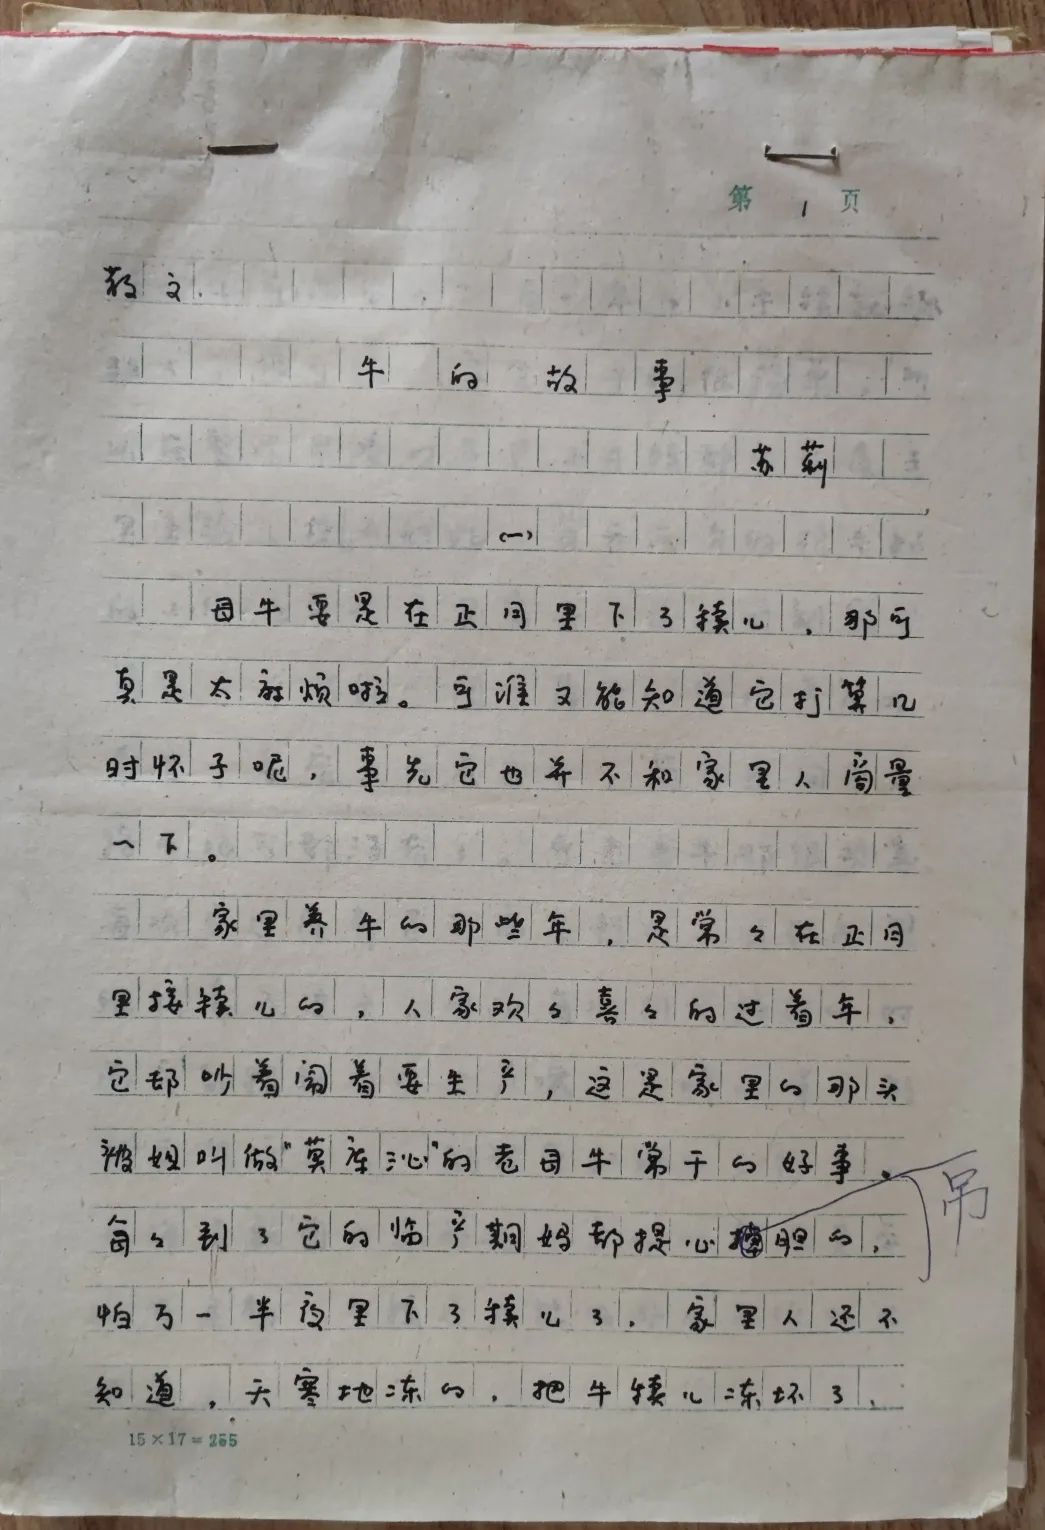 第 1 页
散文
牛的故事
苏莉
(一)
母牛要是在正月里下了犊儿，那可
真是太麻烦啦。可谁又能知道它打算几
时怀子呢，事先它也并不和家里人商量
一下。
家里养牛的那些年，是常々在正月
里接犊儿的，人家欢々喜々的过着年，
它却吵着闹着要生产，这是家里的那头
被姐叫做“莫库沁”的老母牛常干的好事。
每々到了它的临产期妈都提心胆的，
吊
怕万一半夜里下了犊儿了，家里人还不
知道，天寒地冻的，把牛犊儿冻坏了，
15×17=255